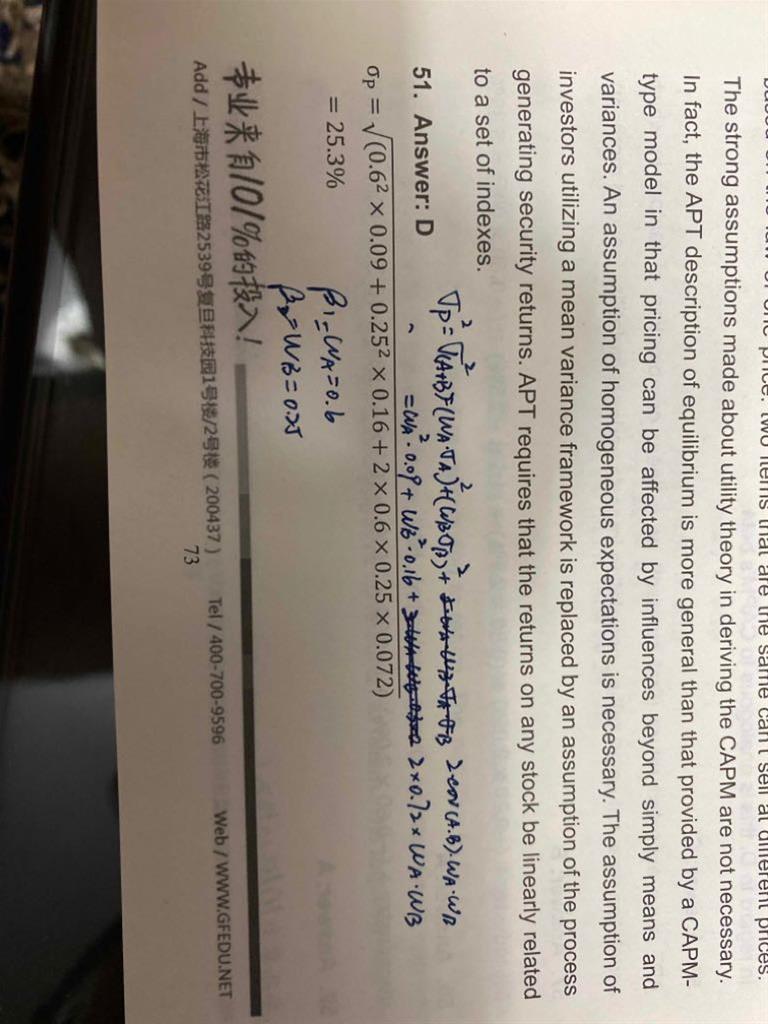 based on the law of one price: two items that are the same can't sell at different prices.
The strong assumptions made about utility theory in deriving the CAPM are not necessary.
In fact, the APT description of equilibrium is more general than that provided by a CAPM-
type model in that pricing can be affected by influences beyond simply means and
variances. An assumption of homogeneous expectations is necessary. The assumption of
investors utilizing a mean variance framework is replaced by an assumption of the process
generating security returns. APT requires that the returns on any stock be linearly related
to a set of indexes.
σp² = σ²(A+B) = (WA·σA)² + (WB·σB)² + 2·cov(A.B)·WA·WB
51. Answer: D
= WA²·0.09 + WB²·0.16 + 2×0.72×WA·WB
σP = √(0.6² × 0.09 + 0.25² × 0.16 + 2 × 0.6 × 0.25 × 0.072)
= 25.3%
β1=WA=0.6
β2=WB=0.25
专业来自101%的投入!
Add / 上海市松花江路2539号复旦科技园1号楼/2号楼 ( 200437 ) Tel / 400-700-9596 Web / WWW.GFEDU.NET
73